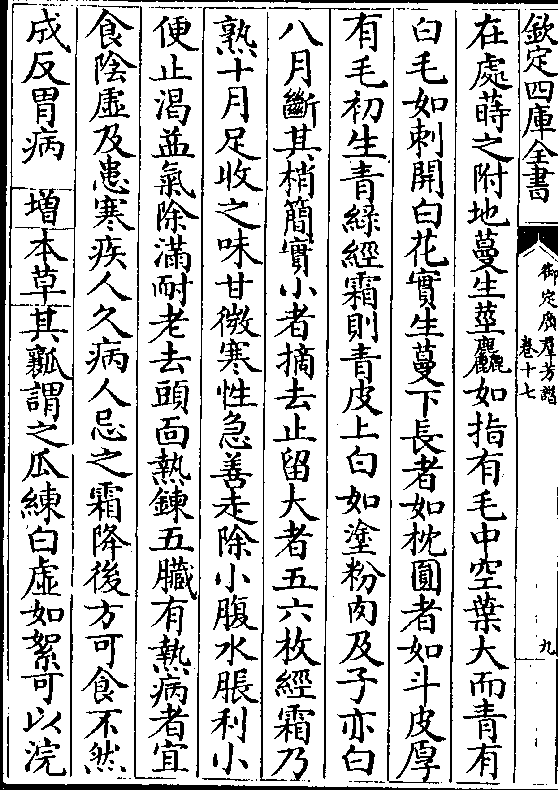 欽定四庫全書
御定廣羣芳譜
卷十七
九
在處蒔之附地蔓生莖麤如指有毛中空葉大而青有
白毛如刺開白花實生蔓下長者如枕圓者如斗皮厚
有毛初生青綠經霜則青皮上白如塗粉肉及子亦白
八月斷其梢簡實小者摘去止留大者五六枚經霜乃
熟十月足收之味甘微寒性急善走除小腹水脹利小
便止渴益氣除滿耐老去頭面熱鍊五臟有熱病者宜
食陰虛及患寒疾人久病人忌之霜降後方可食不然
成反胃病 增本草其瓤謂之瓜練白虛如絮可以浣